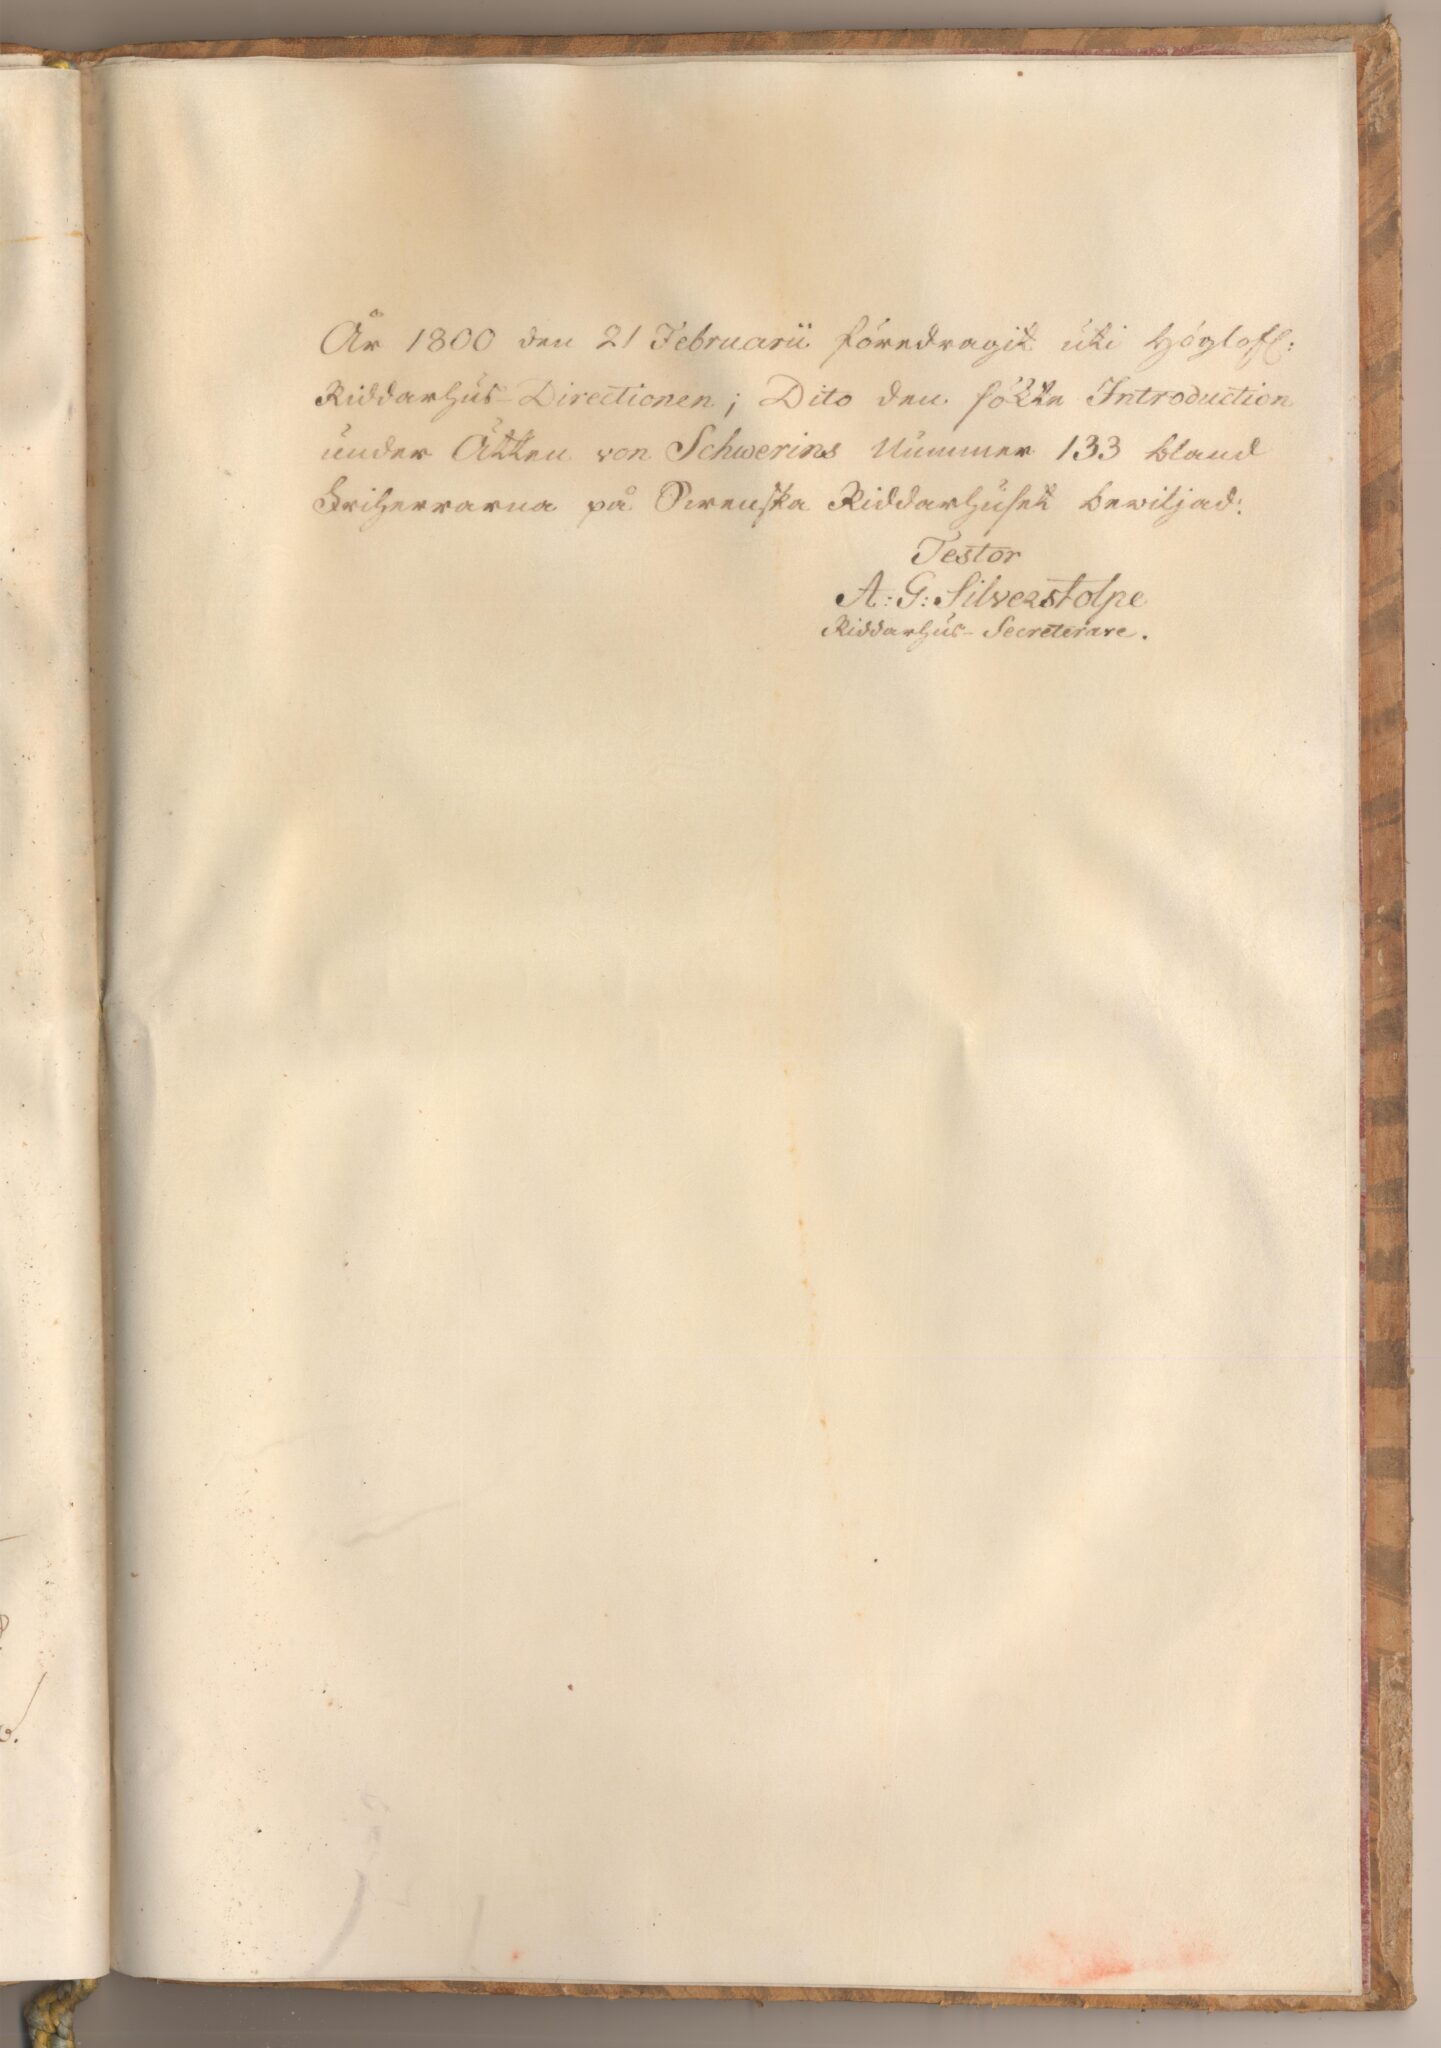 År 1800 den 21 Februarii föredragit uti Höglofl:
Riddarhus-Directionen; Dito den sökte Introduction
under Ätten von Schwerins Nummer 133 bland
Friherrarna på Svenska Riddarhuset bewiljad:
Testor
A: G: Silverstolpe
Riddarhus-Secreterare.